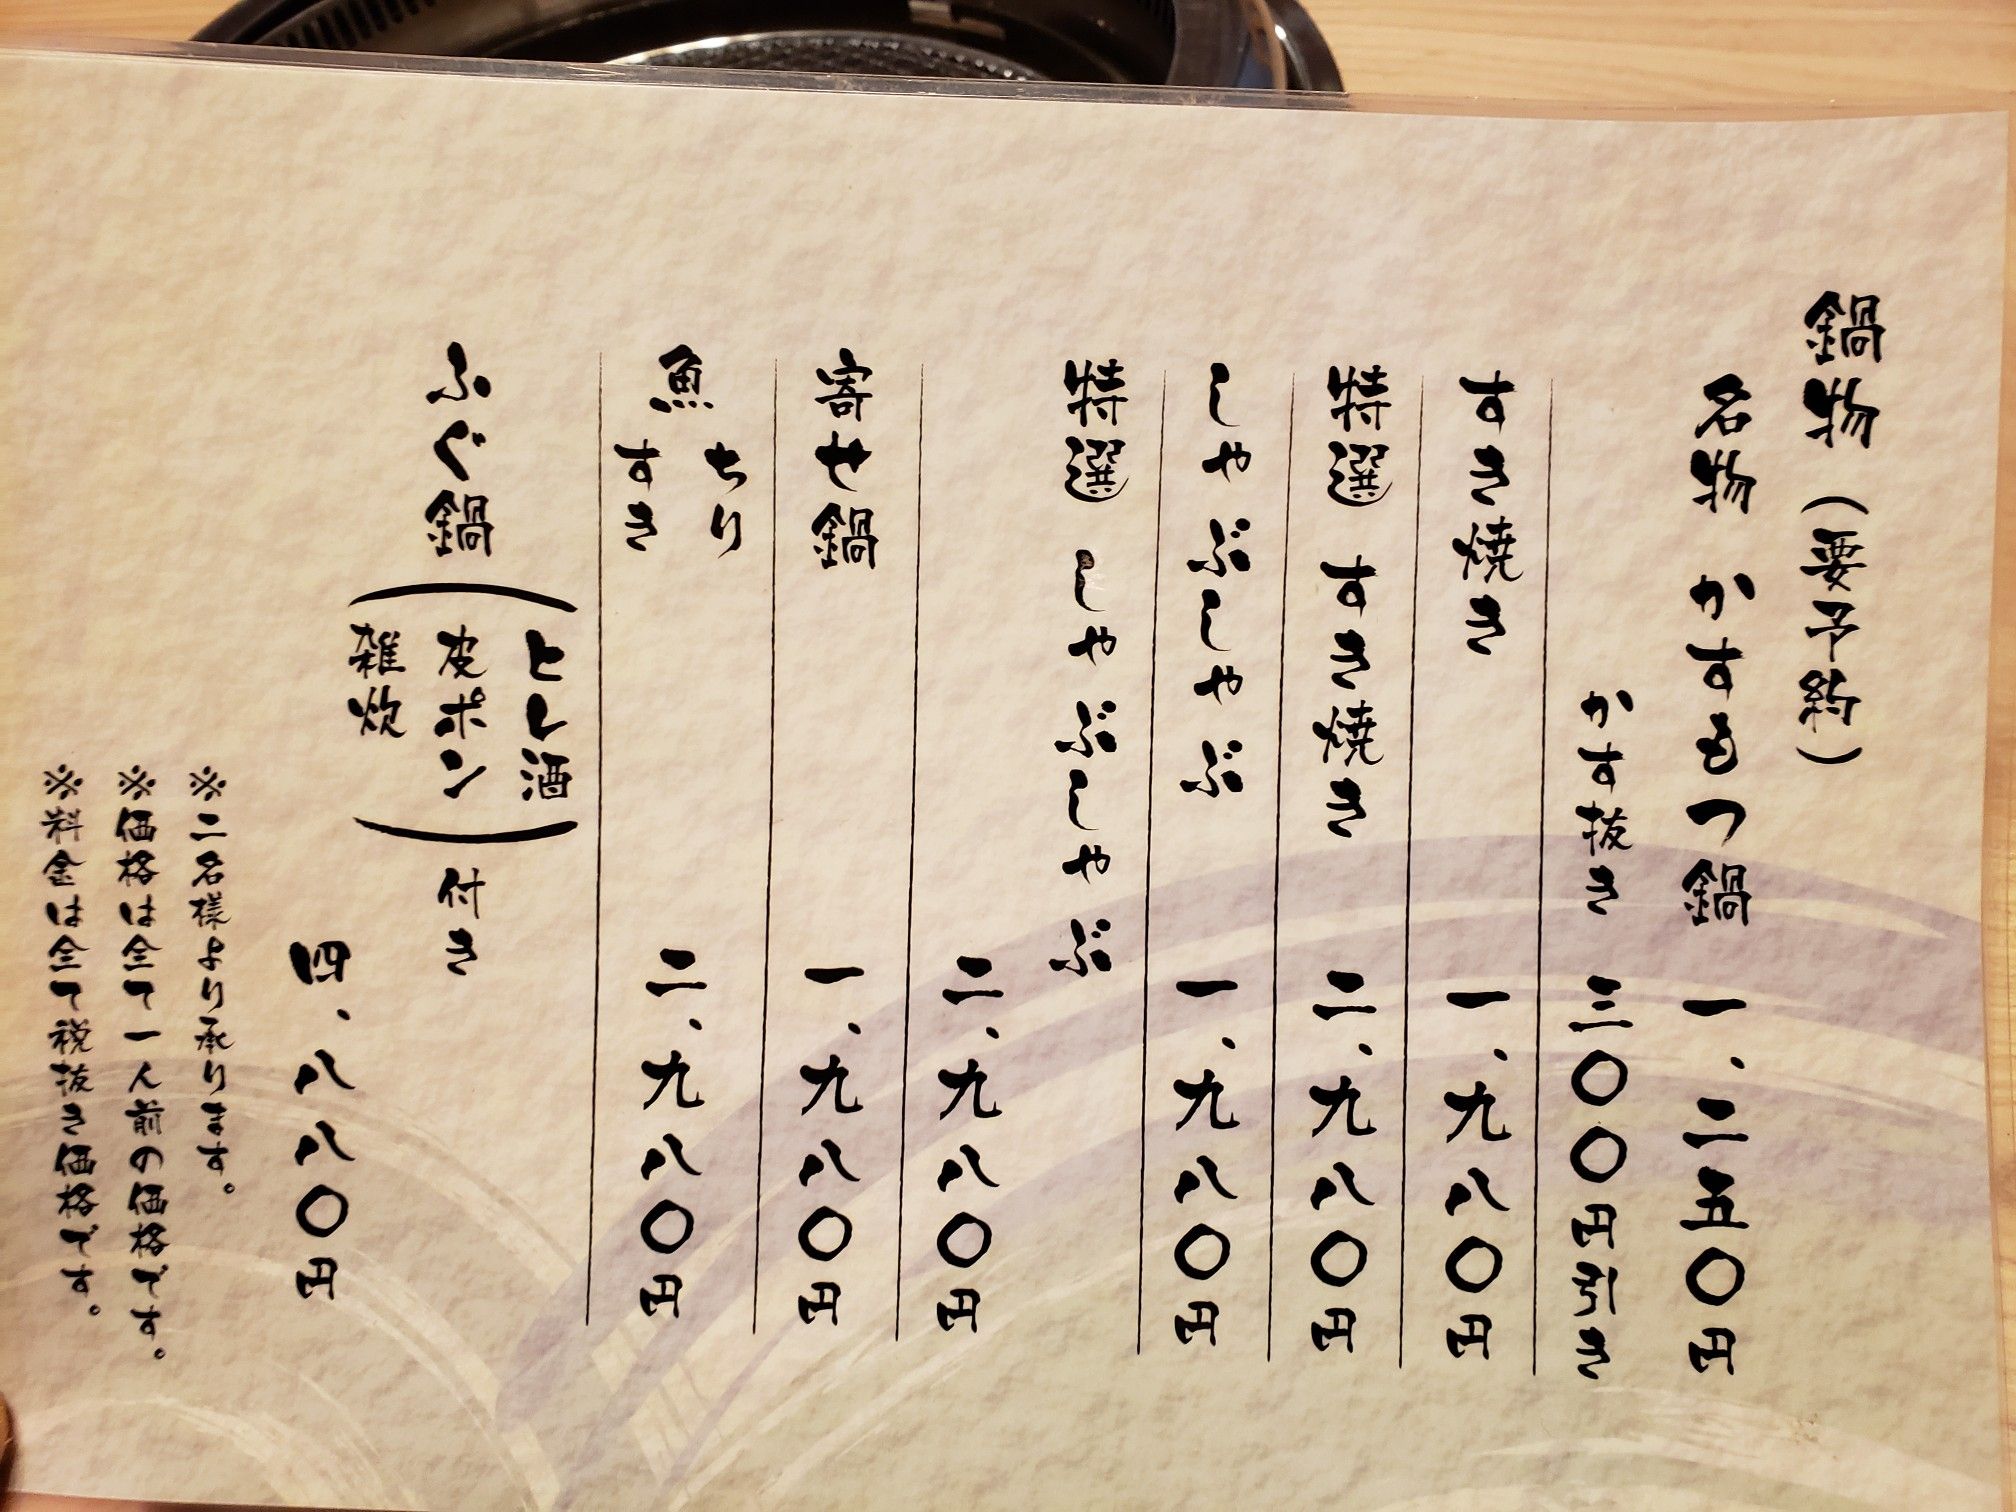 鍋物（要予約）
名物 かすもつ鍋 一、二五〇円
かす抜き 三〇〇円引き
すき焼き 一、九八〇円
特選 すき焼き 二、九八〇円
しゃぶしゃぶ 一、九八〇円
特選 しゃぶしゃぶ
二、九八〇円
寄せ鍋 一、九八〇円
魚 ちり
すき 二、九八〇円
ふぐ鍋（ヒレ酒
皮ポン
雑炊）付き
四、八八〇円
※二名様より承ります。
※価格は全て一人前の価格です。
※料金は全て税抜き価格です。